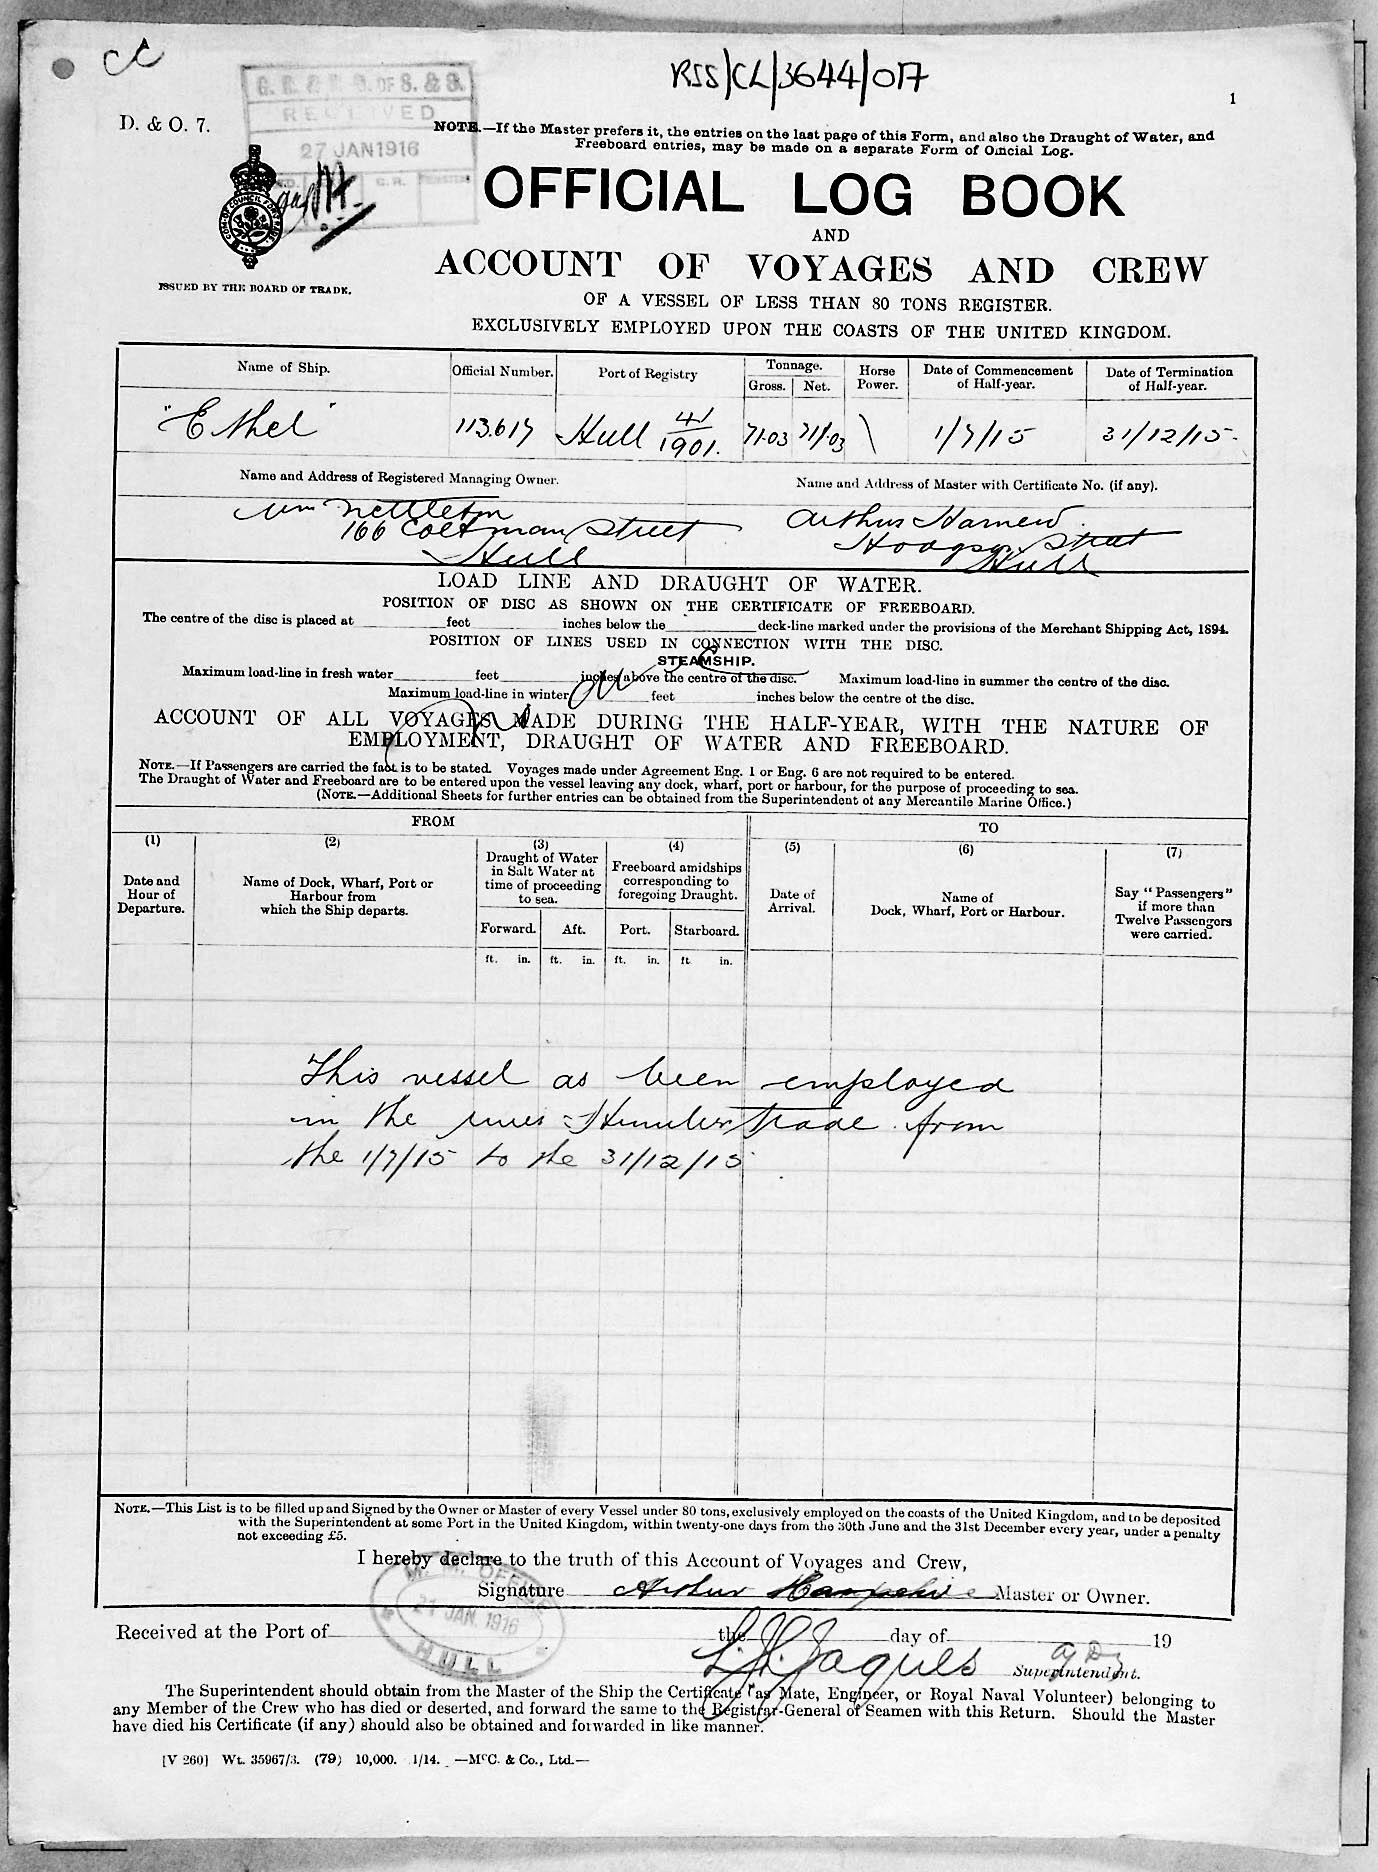 RSS/CL/3644/017
1
D. & O. 7.
RECEIVED
27 JAN 1916
NOTE.—If the Master prefers it, the entries on the last page of this Form, and also the Draught of Water, and
Freeboard entries, may be made on a separate Form of Official Log.
OFFICIAL LOG BOOK
AND
ACCOUNT OF VOYAGES AND CREW
ISSUED BY THE BOARD OF TRADE.
OF A VESSEL OF LESS THAN 80 TONS REGISTER.
EXCLUSIVELY EMPLOYED UPON THE COASTS OF THE UNITED KINGDOM.
Name of Ship. Official Number. Port of Registry Tonnage. Gross. Net. Horse Power. Date of Commencement of Half-year. Date of Termination of Half-year.
"Ethel" 113.617 Hull 41/1901. 71.03 71.03 \ 1/7/15 31/12/15.
Name and Address of Registered Managing Owner. Name and Address of Master with Certificate No. (if any).
Wm Nettleton Arthur
166 Coltman Street Hodgson Street
Hull Hull
LOAD LINE AND DRAUGHT OF WATER.
POSITION OF DISC AS SHOWN ON THE CERTIFICATE OF FREEBOARD.
The centre of the disc is placed at feet inches below the deck-line marked under the provisions of the Merchant Shipping Act, 1894.
POSITION OF LINES USED IN CONNECTION WITH THE DISC.
STEAMSHIP.
Maximum load-line in fresh water feet inches above the centre of the disc. Maximum load-line in summer the centre of the disc.
Maximum load-line in winter feet inches below the centre of the disc.
ACCOUNT OF ALL VOYAGES MADE DURING THE HALF-YEAR, WITH THE NATURE OF
EMPLOYMENT, DRAUGHT OF WATER AND FREEBOARD.
NOTE.—If Passengers are carried the fact is to be stated. Voyages made under Agreement Eng. 1 or Eng. 6 are not required to be entered.
The Draught of Water and Freeboard are to be entered upon the vessel leaving any dock, wharf, port or harbour, for the purpose of proceeding to sea.
(NOTE.—Additional Sheets for further entries can be obtained from the Superintendent of any Mercantile Marine Office.)
FROM TO
(1) (2) (3) (4) (5) (6) (7)
Date and Hour of Departure.
Name of Dock, Wharf, Port or Harbour from which the Ship departs.
Draught of Water in Salt Water at time of proceeding to sea.
Freeboard amidships corresponding to foregoing Draught.
Date of Arrival.
Name of Dock, Wharf, Port or Harbour.
Say "Passengers" if more than Twelve Passengers were carried.
Forward. Aft. Port. Starboard.
ft. in. ft. in. ft. in. ft. in.
This vessel as been employed
in the river Humber trade from
the 1/7/15 to the 31/12/15
NOTE.—This List is to be filled up and Signed by the Owner or Master of every Vessel under 80 tons, exclusively employed on the coasts of the United Kingdom, and to be deposited
with the Superintendent at some Port in the United Kingdom, within twenty-one days from the 30th June and the 31st December every year, under a penalty
not exceeding £5.
I hereby declare to the truth of this Account of Voyages and Crew,
Signature Arthur Master or Owner.
M. M. OFFICE
21 JAN 1916
HULL
Received at the Port of the day of 19
Jaques Superintendent.
The Superintendent should obtain from the Master of the Ship the Certificate (as Mate, Engineer, or Royal Naval Volunteer) belonging to
any Member of the Crew who has died or deserted, and forward the same to the Registrar-General of Seamen with this Return. Should the Master
have died his Certificate (if any) should also be obtained and forwarded in like manner.
[V 260] Wt. 35967/3. (79) 10,000. 1/14. —McC. & Co., Ltd.—